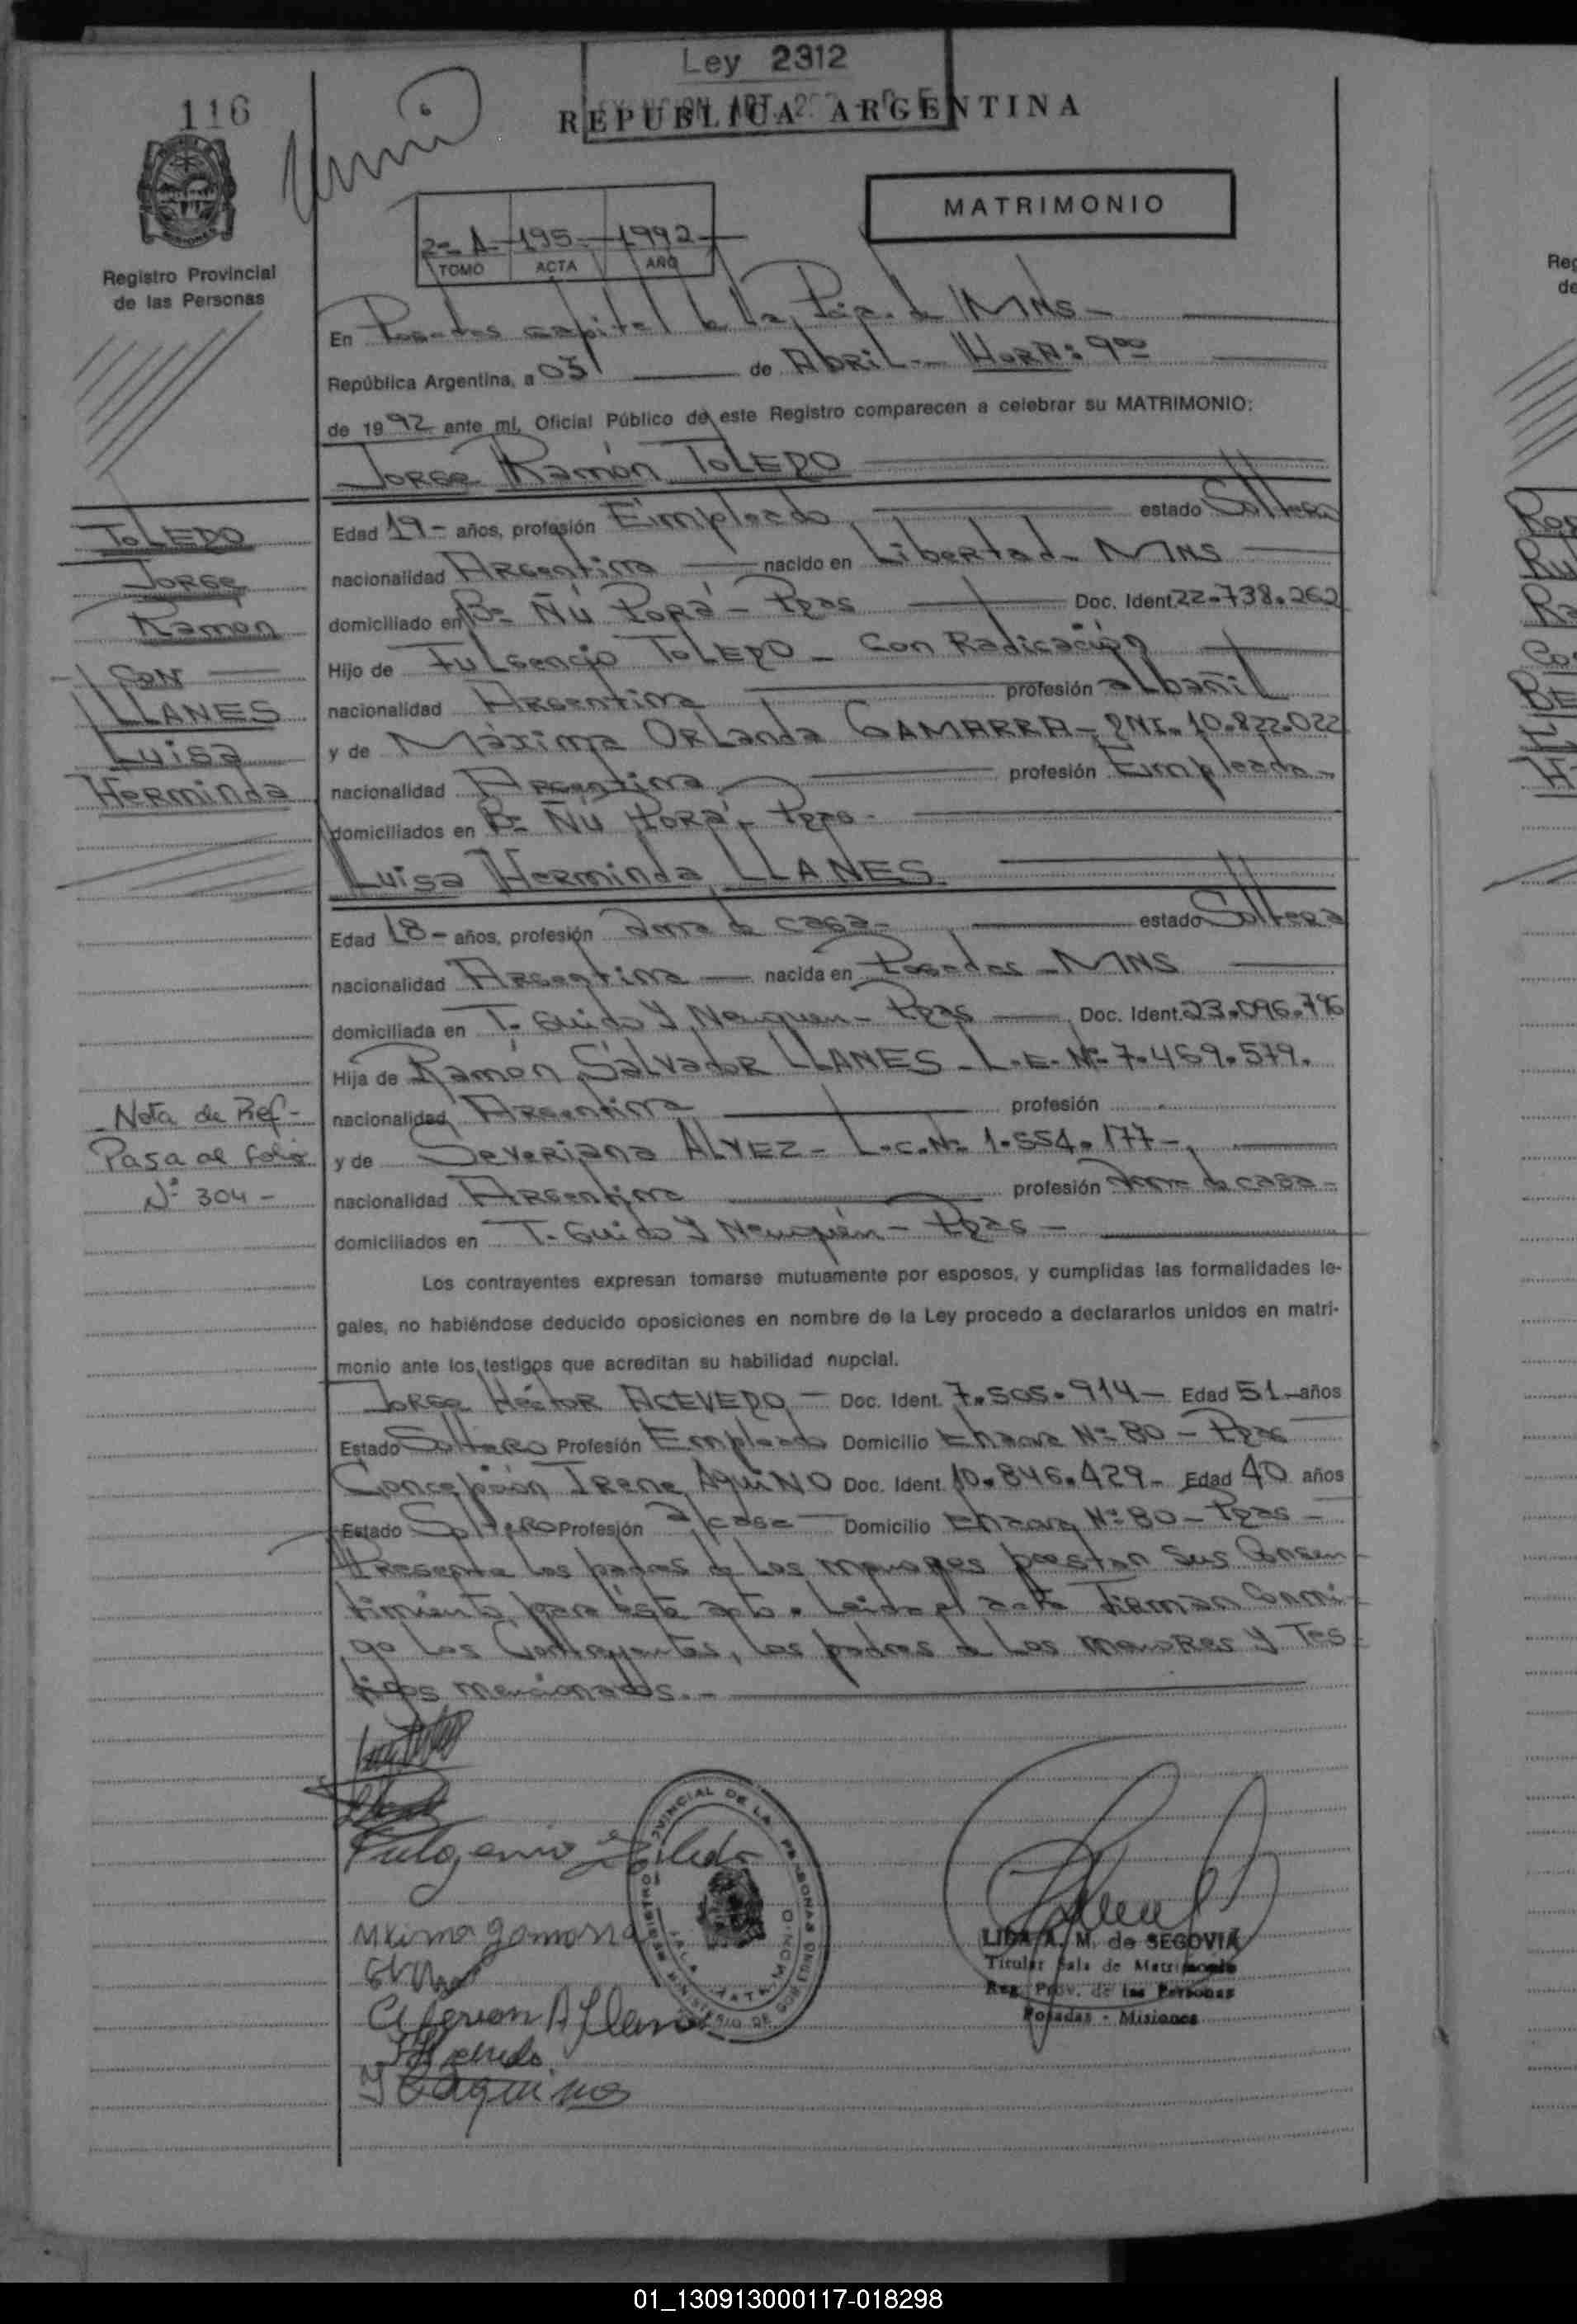 Ley 2312
116
REPUBLICA ARGENTINA
MATRIMONIO
2º A - 195 - 1992
TOMO ACTA AÑO
Registro Provincial
de las Personas
En Posadas capital de la Pcia. de MNS -
República Argentina, a 03 de Abril - HORA: 9 00
de 1992 ante mí, Oficial Público de este Registro comparecen a celebrar su MATRIMONIO:
Jorge Ramón TOLEDO
Edad 19 - años, profesión Empleado estado Soltero
nacionalidad Argentina nacido en Libertad - MNS
domiciliado en Bº Ñú Porá - Pdas Doc. Ident. 22.738.262
Hijo de Fulgencio TOLEDO - con Radicación
nacionalidad Argentina profesión albañil
y de Máxima Orlanda GAMARRA - DNI. 10.822.022
nacionalidad Argentina profesión Empleada -
domiciliados en Bº Ñú Porá - Pdas -
Luisa Herminda LLANES
Edad 18 - años, profesión ama de casa - estado Soltera
nacionalidad Argentina nacida en Posadas - MNS
domiciliada en T. Guido y Neuquen - Pdas Doc. Ident. 23.096.796
Hija de Ramón Salvador LLANES - L.E. Nº 7.469.579.
nacionalidad Argentina profesión
y de Severiana ALVEZ - L.C. Nº 1.554.177 -
nacionalidad Argentina profesión Ama de casa -
domiciliados en T. Guido y Neuquén - Pdas -
Los contrayentes expresan tomarse mutuamente por esposos, y cumplidas las formalidades le-
gales, no habiéndose deducido oposiciones en nombre de la Ley procedo a declararlos unidos en matri-
monio ante los testigos que acreditan su habilidad nupcial.
Jorge Héctor ACEVEDO - Doc. Ident. 7.505.914 - Edad 51 - años
Estado Soltero Profesión Empleado Domicilio Nº 80 - Pdas
Concepción Irene AQUINO Doc. Ident. 10.846.429 - Edad 40 años
Estado Soltero Profesión a/casa Domicilio Nº 80 - Pdas -
Presente los padres de los menores prestan sus Consen
timiento para éste acto. Leida el acta Firman Conmi
go los Contrayentes, los padres de los menores y Tes
tigos mencionados. -
TOLEDO
Jorge
Ramon
CON
LLANES
Luisa
Herminda
- Nota de Ref -
Pasa al folio
Nº 304 -
Fulgencio Toledo
Maxima gamarra
Llanes
Acevedo
Aquino
LIDA A. M. de SEGOVIA
Titular Sala de Matrimonio
Reg. Prov. de las Personas
Posadas - Misiones
01_130913000117-018298